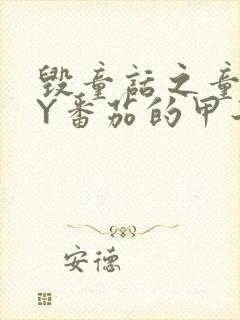 毁童话之童
Y番茄的甲
安德